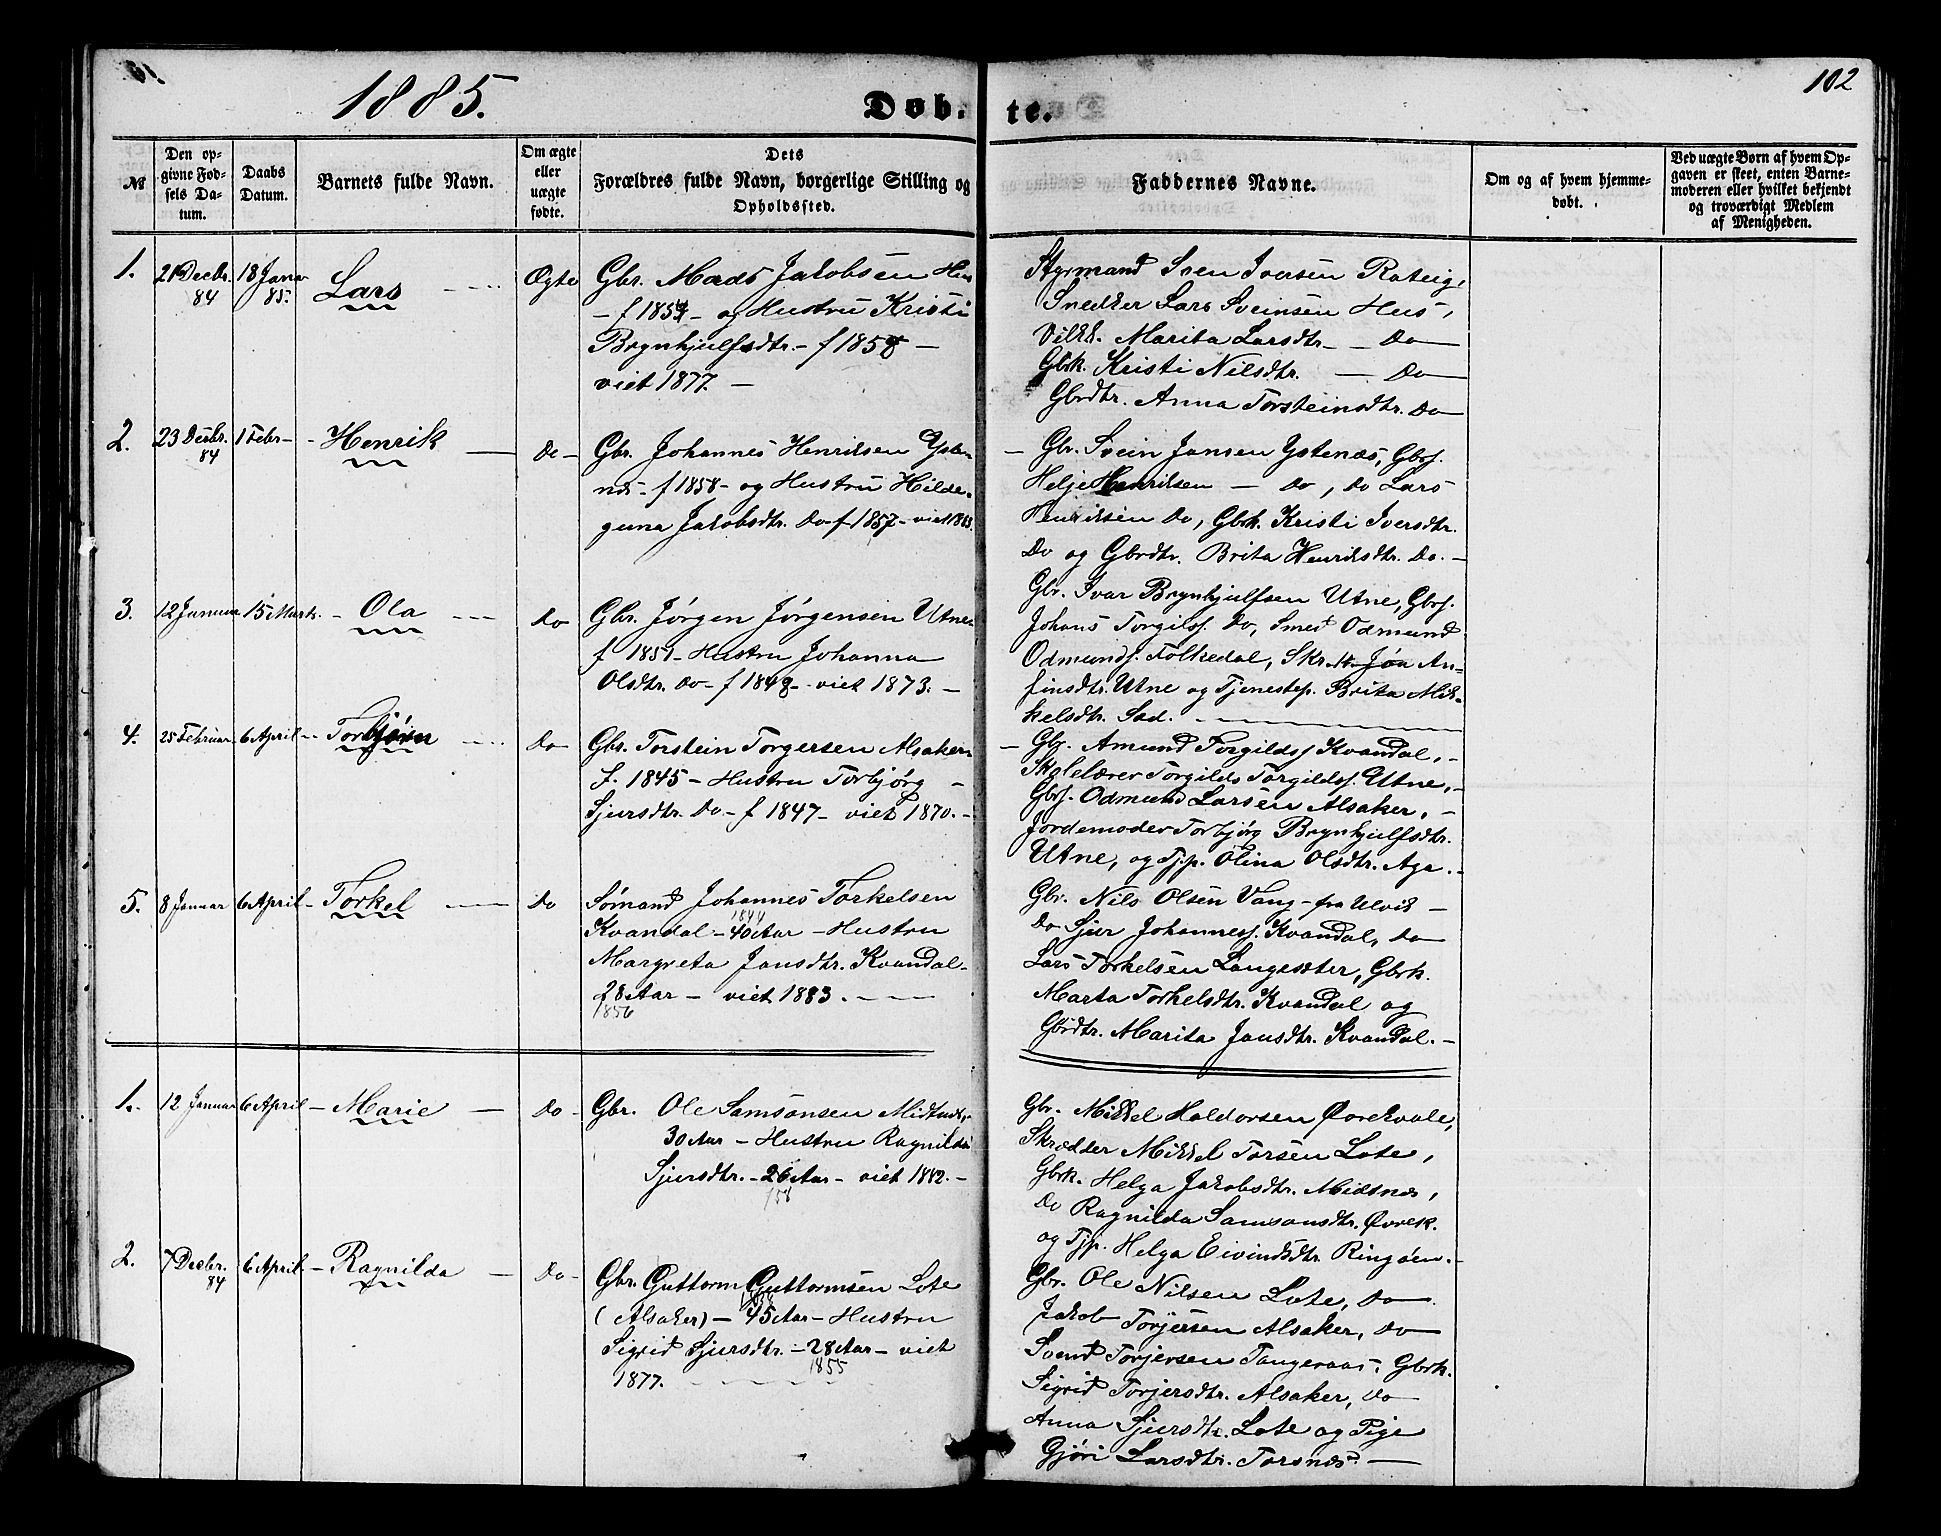 1885.
Døb-
te.
102
№
Den op-
givne Fød-
sels Da-
tum.
Daabs
Datum.
Barnets fulde Navn.
Om ægte
eller
uægte
fødte.
Dets
Forældres fulde Navn, borgerlige Stilling og
Opholdssted.
Faddernes Navne.
Om og af hvem hjemme-
døbt.
Ved uægte Børn af hvem Op-
gaven er skeet, enten Barne-
moderen eller hvilket bekjendt
og troværdigt Medlem
af Menigheden.
1.
21 Decbr.
84
18 Janr
85.
Lars
Ægte
Gbr. Mads Jakobsen Hus
- f 1854 - og Hustru Kristi
Brynhjulfsdtr. - f 1858 -
viet 1877. -
Styrmand Sven Iversen Rateig,
Snedker Lars Sveinsen Hus,
Vilkk. Marita Larsdtr. - Do
Gbrk. Kristi Nilsdtr. - Do
Gbrdtr. Anna Torsteinsdtr. Do
2.
23 Decbr.
84
1 Febr -
- Henrik
Do -
Gbr. Johannes Henriksen Ysten-
næs - f 1858 - og Hustru Hilde-
guna Jakobsdtr. Do - f 1857 - viet 1883.
- Gbr. Svein Jansen Ystenæs, Gbrs.
Helje Henriksen - Do, Do Lars
Henriksen Do, Gbrk. Kristi Iversdtr.
Do og Gbrdtr. Brita Henriksdtr. Do. -
3.
12 Januar
15 Marts.
- Ola
Do
Gbr. Jørgen Jørgensen Utne
f 1851 - Hustru Johanna
Olsdtr. Do - f 1848 - viet 1873. -
Gbr. Ivar Brynhjulfsen Utne, Gbrs.
Johans Torgilss. Do, Smed Odmund
Odmunds. Folkedal, Skr. Jøn An-
finsdtr. Utne og Tjenestep. Brita Mik-
kelsdtr. Sad.
4.
25 Februar
6 April -
- Torbjørn
Do
Gbr. Torstein Torgersen Alsaker
f. 1845 - Hustru Torbjørg -
Sjursdtr. Do - f 1847 - viet 1870. -
- Gbr. Amund Torgildss. Kvandal, -
Skolelærer Torgilds Torgildss. Utne, -
Gbrs. Odmund Larsen Alsaker, -
Jordemoder Torbjørg Brynhjulfsdtr.
Utne, og Tjp. Olina Olsdtr. Aga. -
5.
8 Januar
6 April
- Torkel
Do
Sømand Johannes Torkelsen
1844
Kvandal - 40 Aar - Hustru
Margreta Jansdtr. Kvandal -
28 Aar - viet 1883. -
1856
Gbr. Nils Olsen Vang - fra Ulvik -
Do Sjur Johanness. Kvandal, Do
Lars Torkelsen Langesæter, Gbrk.
Marta Torkelsdtr. Kvandal og
Gbrdtr. Marita Jansdtr. Kvandal. -
1.
12 Januar
6 April
- Marie -
Do -
Gbr. Ole Samsonsen Midtnæs,
30 Aar - Hustru Ragnilda
Sjursdtr. - 26 Aar - viet 1882. -
/58
Gbr. Mikkel Haldorsen Øvrekvale,
Skrædder Mikkel Torsen Lote,
Gbrk. Helga Jakobsdtr. Midtnæs,
Do Ragnilda Samsonsdtr. Øvrek.
og Tjp. Helga Eivindsdtr. Ringøen. -
2.
7 Decbr.
84
6 April
- Ragnilda -
Do -
Gbr. Guttorm Guttormsen Lote
(Alsaker) - 45 Aar - Hustru
Sigrid Sjursdtr. - 28 Aar - viet
1855
1877.
Gbr. Ole Nilsen Lote, Do
Jakob Torjersen Alsaker, Do
Svend Torjersen Tangeraas, Gbrk.
Sigrid Torjersdtr. Alsaker, Do
Anna Sjursdtr. Lote og Pige
Gjøri Larsdtr. Torsnæs. -